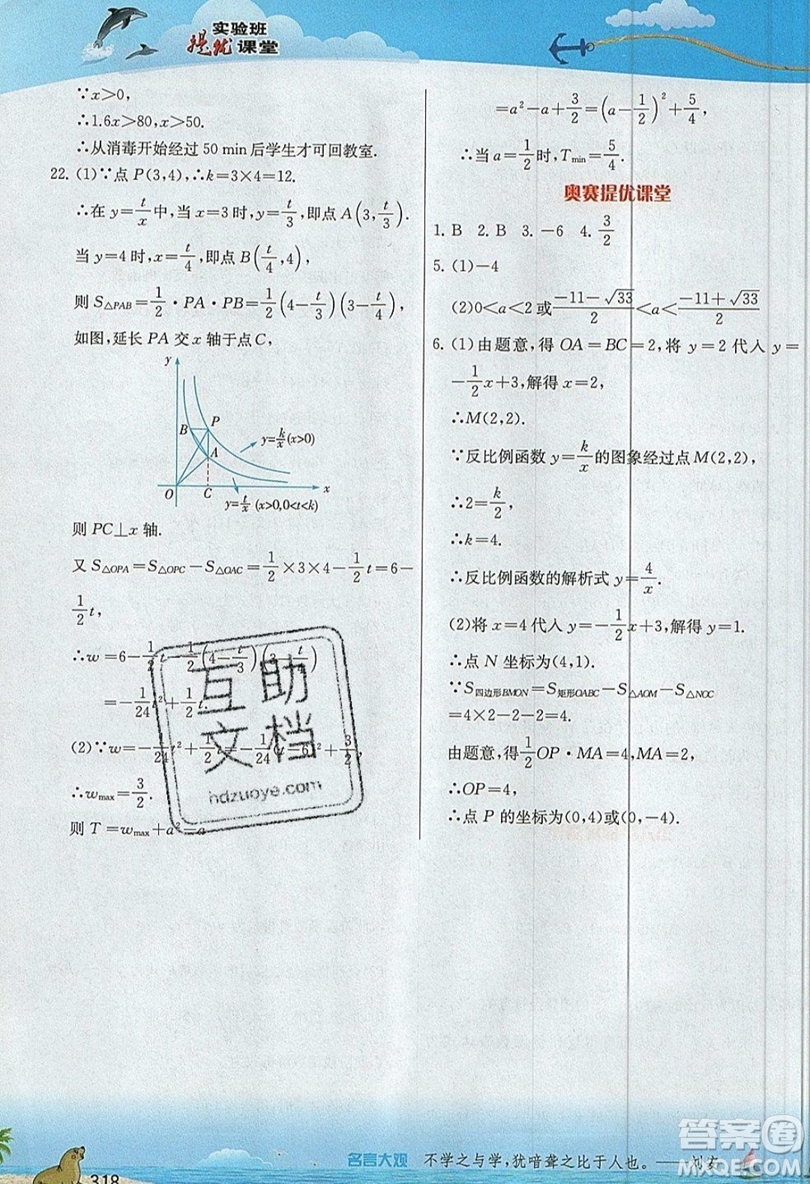 实验班
提优课堂
∵x>0,
∴1.6x>80,x>50.
∴从消毒开始经过 50 min后学生才可回教室.
22. (1)∵点 P(3,4),∴k=3×4=12.
∴在 y=t/x中,当 x=3时,y=t/3,即点 A(3,t/3).
当 y=4时,x=t/4,即点 B(t/4,4),
则 S△PAB=1/2·PA·PB=1/2(4-t/3)(3-t/4),
如图,延长 PA 交 x 轴于点 C,
y
B P
A
y=k/x(x>0)
O C x
y=t/x(x>0,0<t<k)
则 PC⊥x 轴.
又 S△OPA=S△OPC-S△OAC=1/2×3×4-1/2t=6-
1/2t,
∴w=6-1/2t-1/2(4-t/3)(3-t/4)
=-1/24t²+1/2t.
(2)∵w=-1/24t²+1/2t=-1/24(t-6)²+3/2,
∴wmax=3/2.
则 T=wmax+a²-a
=a²-a+3/2=(a-1/2)²+5/4,
∴当 a=1/2时,Tmin=5/4.
奥赛提优课堂
1. B 2. B 3. -6 4. 3/2
5. (1)-4
(2)0<a<2 或(-11-√33)/2<a<(-11+√33)/2
6. (1)由题意,得 OA=BC=2,将 y=2代入 y=
-1/2x+3,解得 x=2,
∴M(2,2).
∵反比例函数 y=k/x的图象经过点 M(2,2),
∴2=k/2,
∴k=4.
∴反比例函数的解析式 y=4/x.
(2)将 x=4代入 y=-1/2x+3,解得 y=1.
∴点 N 坐标为(4,1).
∵S四边形BMON=S矩形OABC-S△AOM-S△NOC
=4×2-2-2=4.
由题意,得1/2OP·MA=4,MA=2,
∴OP=4,
∴点 P 的坐标为(0,4)或(0,-4).
互助
文档
hdzuoye.com
318
名言大观 不学之与学,犹喑聋之比于人也。——刘安
答案圈
MXQE.COM